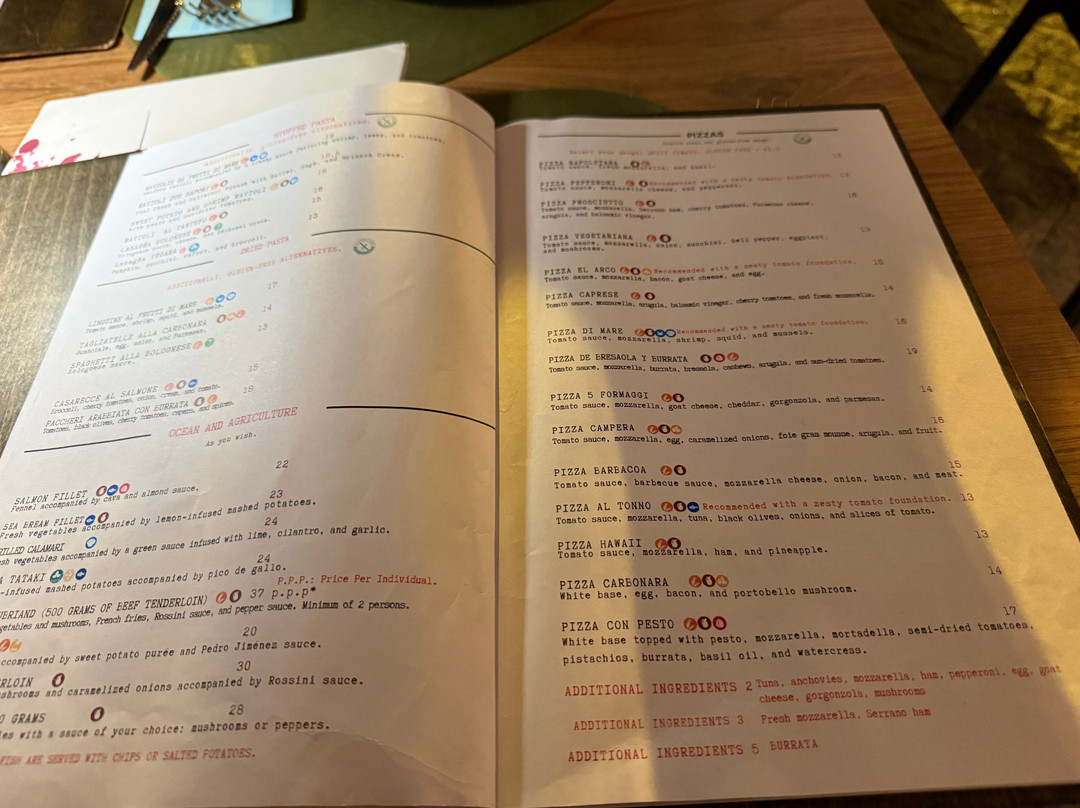 STUFFED PASTA
ADDITIONALLY, gluten-free alternatives.
RAVIOLIS DE FRUTTI DI MARE 19
RAVIOLI DUE SAPORI
SWEET POTATO AND SHRIMP RAVIOLI
RAVIOLI AL TARTUFO
LASAGNA BOLOGNESE
LASAGNA VEGANA
Pumpkin, zucchini, carrot, and broccoli.
DRIED PASTA
ADDITIONALLY, GLUTEN-FREE ALTERNATIVES.
LINGUINE AL FRUTTI DI MARE 17
Tomato sauce, shrimp, squid, and mussels.
TAGLIATELLE ALLA CARBONARA 14
Guanciale, egg, onion, and Parmesan.
SPAGHETTI ALLA BOLOGNESE 13
Bolognese sauce.
CASARECCE AL SALMONE 15
Broccoli, cherry tomatoes, onion, cream, and tomato.
PACCHERI ARABBIATA CON BURRATA 18
Tomatoes, black olives, cherry tomatoes, capers, and spices.
OCEAN AND AGRICULTURE
As you wish.
SALMON FILLET 22
Fennel accompanied by cava and almond sauce.
SEA BREAM FILLET 23
Fresh vegetables accompanied by lemon-infused mashed potatoes.
CALAMARI 24
vegetables accompanied by a green sauce infused with lime, cilantro, and garlic.
TATAKI 24
-infused mashed potatoes accompanied by pico de gallo.
P.P.P.: Price Per Individual.
(500 GRAMS OF BEEF TENDERLOIN) 37 p.p.p*
and mushrooms, French fries, Rossini sauce, and pepper sauce. Minimum of 2 persons.
20
accompanied by sweet potato purée and Pedro Jiménez sauce.
30
and caramelized onions accompanied by Rossini sauce.
GRAMS 28
with a sauce of your choice: mushrooms or peppers.
FISH ARE SERVED WITH CHIPS OR SALTED POTATOES.
PIZZAS
PIZZA NAPOLETANA 12
Tomato sauce, fresh mozzarella, and basil.
PIZZA PEPPERONI Recommended with a zesty tomato foundation.
Tomato sauce, mozzarella cheese, and pepperoni.
PIZZA PROSCIUTTO 16
Tomato sauce, mozzarella, Serrano ham, cherry tomatoes, Parmesan cheese,
arugula, and balsamic vinegar.
PIZZA VEGETARIANA 13
Tomato sauce, mozzarella, onion, zucchini, bell pepper, eggplant,
and mushrooms.
PIZZA EL ARCO Recommended with a zesty tomato foundation. 15
Tomato sauce, mozzarella, bacon, goat cheese, and egg.
PIZZA CAPRESE 14
Tomato sauce, mozzarella, arugula, balsamic vinegar, cherry tomatoes, and fresh mozzarella.
PIZZA DI MARE Recommended with a zesty tomato foundation. 16
Tomato sauce, mozzarella, shrimp, squid, and mussels.
PIZZA DE BRESAOLA Y BURRATA 19
Tomato sauce, mozzarella, burrata, bresaola, cashews, arugula, and sun-dried tomatoes.
PIZZA 5 FORMAGGI 14
Tomato sauce, mozzarella, goat cheese, cheddar, gorgonzola, and parmesan.
PIZZA CAMPERA 16
Tomato sauce, mozzarella, egg, caramelized onions, foie gras mousse, arugula, and fruit.
PIZZA BARBACOA 15
Tomato sauce, barbecue sauce, mozzarella cheese, onion, bacon, and meat.
PIZZA AL TONNO Recommended with a zesty tomato foundation. 13
Tomato sauce, mozzarella, tuna, black olives, onions, and slices of tomato.
PIZZA HAWAII 13
Tomato sauce, mozzarella, ham, and pineapple.
PIZZA CARBONARA 14
White base, egg, bacon, and portobello mushroom.
PIZZA CON PESTO 17
White base topped with pesto, mozzarella, mortadella, semi-dried tomatoes,
pistachios, burrata, basil oil, and watercress.
ADDITIONAL INGREDIENTS 2 Tuna, anchovies, mozzarella, ham, pepperoni, egg, goat
cheese, gorgonzola, mushrooms
ADDITIONAL INGREDIENTS 3 Fresh mozzarella, Serrano ham
ADDITIONAL INGREDIENTS 5 BURRATA